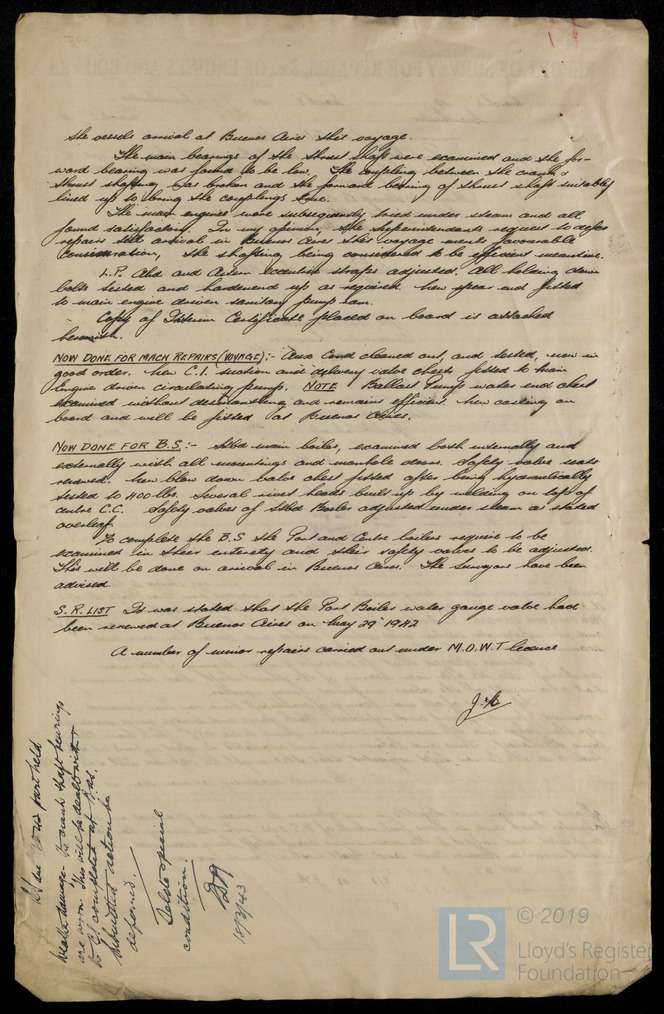 the vessels arrival at Buenos Aires this voyage.
The main bearings of the thrust shaft were examined and the for-
ward bearing was found to be low. The coupling between the crank &
thrust shafting was broken and the forward bearing of thrust shaft suitably
lined up to bring the couplings true.
The main engines were subsequently tried under steam and all
found satisfactory. In my opinion, the Superintendents request to defer
repairs till arrival in Buenos Aires this voyage merits favourable
consideration, the shafting being considered to be efficient meantime.
L.P. Ahd and Astern eccentric straps adjusted. All holding down
bolts tested and hardened up as required. New spear end fitted
to main engine driven sanitary pump ram.
Copy of Interim Certificate placed on board is attached
herewith.
NOW DONE FOR MACH REPAIRS (VOYAGE):- Aux Cond cleaned out, and tested, now in
good order. New C.I. suction and delivery valve chests fitted to main
engine driven circulating pump. NOTE Ballast Pump water end chest
examined without dismantling and remains efficient. New casting on
board and will be fitted at Buenos Aires.
NOW DONE FOR B.S:- Stbd main boiler, examined both internally and
externally with all mountings and manhole doors. Safety valve seats
renewed. New blow down valve chest fitted after being hydraulically
tested to 400 lbs. Several rivet heads built up by welding on top of
centre C.C. Safety valves of Stbd Boiler adjusted under steam as stated
overleaf.
To complete the B.S the Port and Centre boilers require to be
examined in their entirety and their safety valves to be adjusted.
This will be done on arrival in Buenos Aires. The Surveyors have been
advised.
S.R. LIST It was stated that the Port Boiler water gauge valve had
been renewed at Buenos Aires on May 29th 1942
A number of minor repairs carried out under M.O.W.T licence
due part held
Weather damage. The crank shaft bearings
are worn. This will be dealt with &
completed at B. As.
Submitted action be
deferred.
Delete special
condition.
18/3/43
LR
© 2019
Lloyd's Register
Foundation